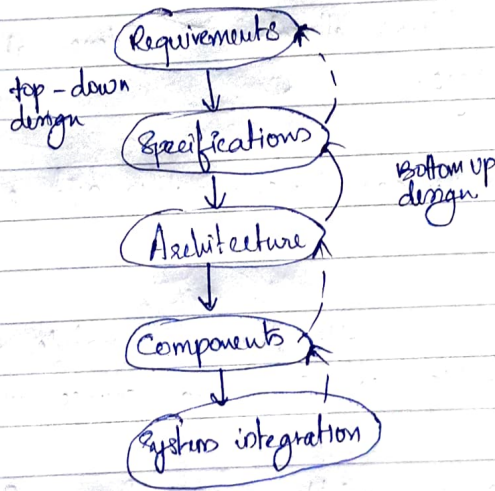 Requirements
top-down
design
Specifications
Bottom up
design
Architecture
Components
System integration